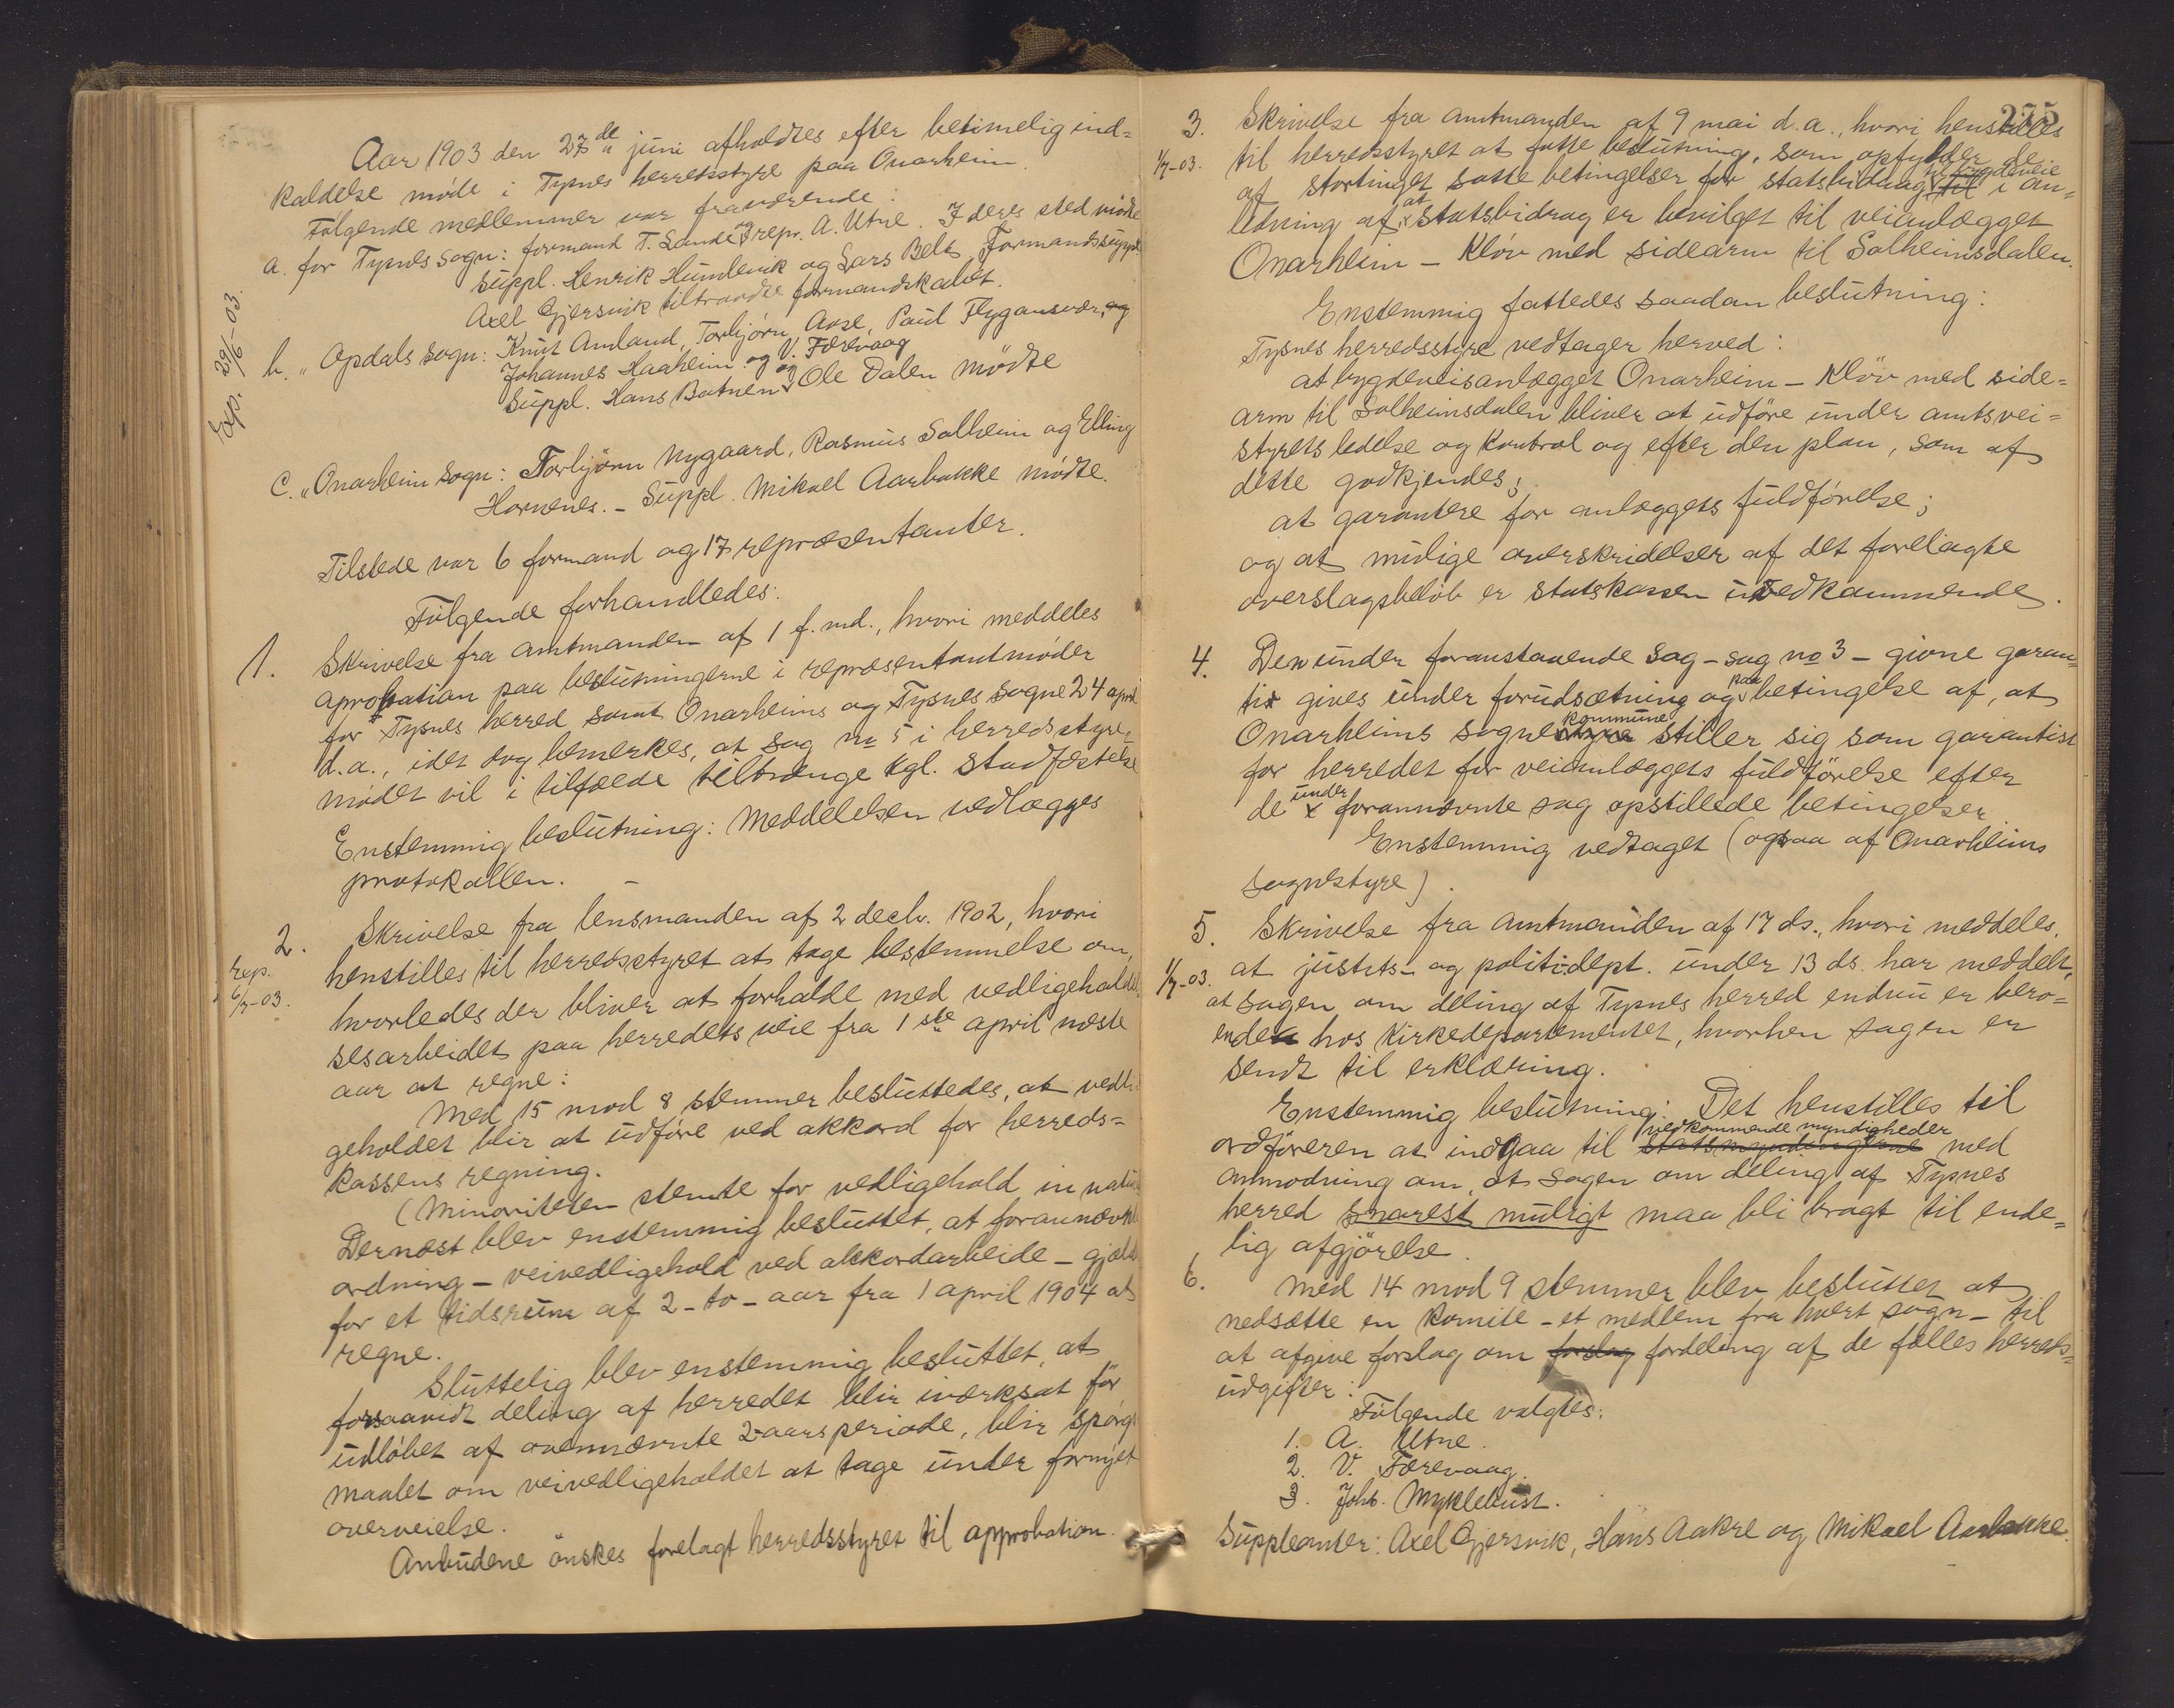 Aar 1903 den 27de juni afholdtes efter betimelig ind=
kaldelse møde i Tysnes herredsstyre paa Onarheim.
Følgende medlemmer var fraværende:
a. for Tysnes sogn: formand T. Lande og repr. A. Utne. I deres sted mødte
suppl. Henrik Humlevik og Lars Belt. Formandssuppl.
Axel Gjersvik tiltraadte formandskabet.
Exp. 29/6-03.
b. " Opdals sogn: Knut Amland, Torbjørn Aase, Paul Flygansvær, og
Johannes Haaheim og V. Færevaag
Suppl. Hans Botnen og Ole Dalen mødte
c. " Onarheim sogn: Torbjørn Nygaard, Rasmus Solheim og Elling
Hornenes. - Suppl. Mikael Aarbakke mødte.
Tilstede var 6 formænd og 17 repræsentanter.
Følgende forhandledes:
1. Skrivelse fra amtmanden af 1 f. md., hvori meddeles
aprobation paa beslutningerne i repræsentantmøder
for Tysnes herred samt Onarheims og Tysnes sogne 24 april
d.a., idet dog bemerkes, at sag no 5 i herredsstyre=
mødet vil i tilfælde tiltrænge kgl. stadfæstelse
Enstemmig beslutning: Meddelelsen vedlægges
protokollen. -
2. Skrivelse fra lensmanden af 2 decb. 1902, hvori
Exp. 6/7-03.
henstilles til herredsstyret at tage bestemmelse om,
hvorledes der bliver at forholde med vedligeholdel
sesarbeidet paa herredets veie fra 1ste april næste
aar at regne:
Med 15 mod 8 stemmer besluttedes, at vedli
geholdet blir at udføre ved akkord for herreds=
kassens regning.
(Minoriteten stemte for vedligehold in natura
Dernæst blev enstemmig besluttet, at forannævnte
ordning - veivedligehold ved akkordarbeide - gjælder
for et tidsrum af 2 - to - aar fra 1 april 1904 at
regne.
Sluttelig blev enstemmig besluttet, at
forsaavidt deling af herredet blir iværksat før
udløbet af ovennævnte 2aarsperiode, blir spørgs
maalet om veivedligeholdet at tage under fornyet
overveielse.
Anbudene ønskes forelagt herredsstyret til approbation.
275
3. Skrivelse fra amtmanden af 9 mai d.a., hvori henstilles
1/7-03. til herredsstyret at fatte beslutning, som opfylder de
af stortinget satte betingelser for statsbidrag til bygdeveie i an=
ledning af, at statsbidrag er bevilget til veianlægget
Onarheim - Kløv med sidearm til Solheimsdalen.
Enstemmig fattedes saadan beslutning:
Tysnes herredsstyre vedtager herved:
at bygdeveisanlægget Onarheim - Kløv med side=
arm til Solheimsdalen bliver at udføre under amtsvei=
styrets ledelse og kontrol og efter den plan, som af
dette godkjendes;
at garantere for anlæggets fuldførelse;
og at mulige overskridelser af det forelagte
overslagsbeløb er statskassen uvedkommende.
4. Den under foranstaaende sag - sag no 3 - givne garan=
ti gives under forudsætning og paa betingelse af, at
Onarheims sognekommune stiller sig som garantist
for herredet for veianlæggets fuldførelse efter
de under forannævnte sag opstillede betingelser
Enstemmig vedtaget (ogsaa af Onarheims
sognestyre).
5. Skrivelse fra amtmanden af 17 ds., hvori meddeles,
1/7-03. at justits- og politidept. under 13 ds. har meddelt,
at sagen om deling af Tysnes herred endnu er bero=
ende hos Kirkedepartementet, hvorhen sagen er
sendt til erklæring.
Enstemmig beslutning: Det henstilles til
ordføreren at indgaa til vedkommende myndigheder med
anmodning om, at sagen om deling af Tysnes
herred snarest muligt maa bli bragt til ende=
lig afgjørelse.
6. Med 14 mod 9 stemmer blev besluttet at
nedsætte en komite - et medlem fra hvert sogn - til
at afgive forslag om forslag fordeling af de fælles herreds=
udgifter:
Følgende valgtes:
1. A. Utne.
2. V. Færevaag.
3. Johs. Myklebust.
Suppleanter: Axel Gjersvik, Hans Aakre og Mikael Aarbakke.